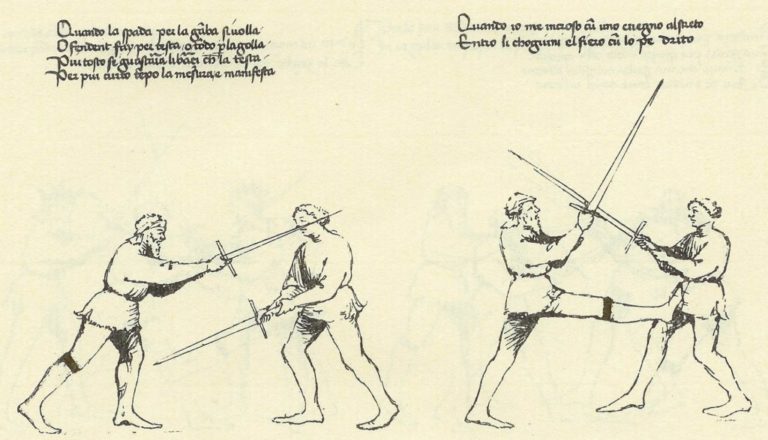 Quando la spada per la gãba si volla
O fendent fay per testa o todo p la golla
Piu tosto se guastariã li braçi ch̃ la testa
Per piu curto tẽpo la mesura, e manifesta
Quando io me incroso cũ uno e uegno al streto
Entro li choguini el fiero cũ lo pe drito